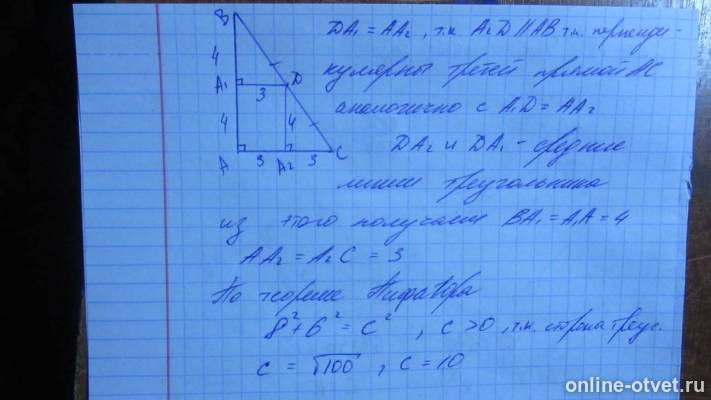 B
4
A₁
3
D
4
4
A
3
A₂
3
C
DA₁ = AA₂, т.к A₂D || AB т.к. перпенди-
куляры третей прямой AC
аналогично с A₁D = AA₂
DA₂ и DA₁ - средние
линии треугольника
из этого получаем BA₁ = A₁A = 4
AA₂ = A₂C = 3
По теореме Пифагора
8² + 6² = c² , c > 0, т.к. сторона треуг.
c = √100 , c = 10
online-otvet.ru